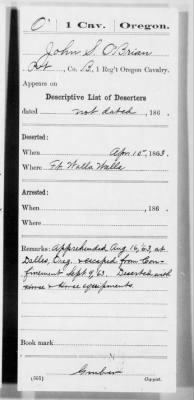 O' 1 Cav. Oregon.
John S. O'Brian
Pvt, Co. B, 1 Reg't Oregon Cavalry.
Appears on
Descriptive List of Deserters
dated not dated, 186 .
Deserted:
When Apr. 10", 1863.
Where Ft. Walla Walla
Arrested:
When , 186 .
Where
Remarks: Apprehended Aug 16, '63, at
Dalles, Oreg. & escaped from Con-
finement Sept 9, '63. Deserted with
horse & horse equipments.
Book mark
(501) Copyist.